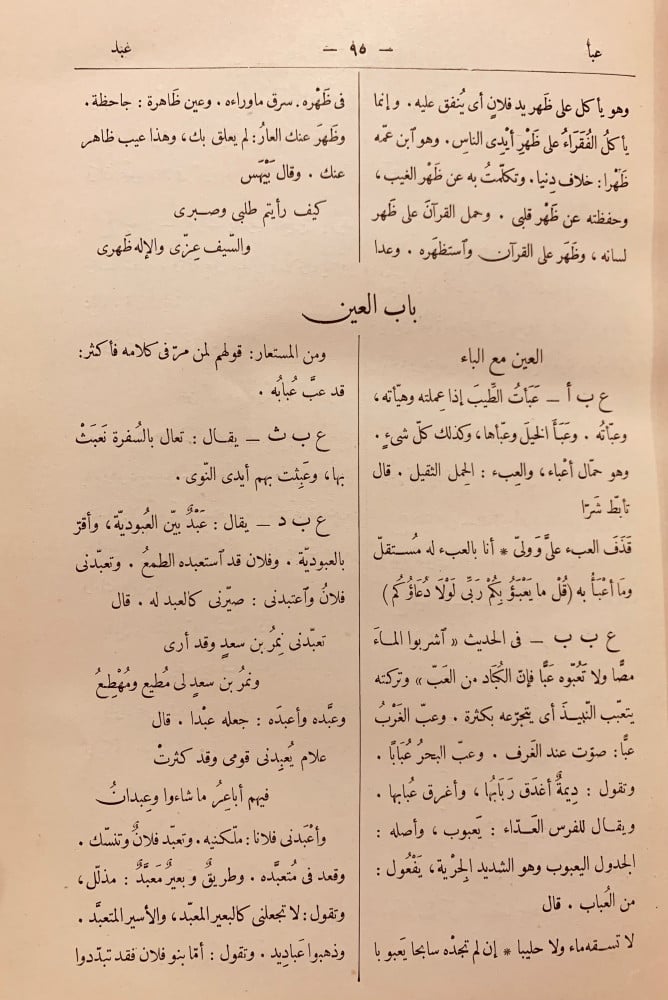 عبأ
— ٩٥ —
عبد
وهو يأكل على ظهر يد فلان أى يُنفق عليه . وإنما
يأكلُ الفُقَرَاءُ على ظَهْرِ أيْدِى الناس . وهو ٱبن عمّه
ظَهْرا : خلاف دِنيا . وتكلّمتُ به عن ظَهْر الغيب ،
وحفظته عن ظَهْر قلبى . وحمل القرآنَ على ظَهْر
لسانه ، وظَهَر على القرآن وٱستظهره . وعدا
فى ظَهْره . سرق ماوراءه . وعين ظاهرة : جاحظة .
وظَهرَ عنك العارُ : لم يعلق بك، وهذا عيب ظاهر
عنك . وقال بَيْهَس
كيف رأيتم طلبى وصــبرى
والسّيف عِزّى والإله ظَهرى
باب العين
العين مع الباء
ع ب أ — عَبَأتُ الطِّيبَ إذا عملته وهيّأته ،
وعبّأته . وعَبَأَ الخيلَ وعبّأها، وكذلك كلّ شىءٍ .
وهو حمّال أعْباء ، والعِبء : الحِمل الثقيل . قال
تأبطّ شَرًا
قَذَفَ العبء علىَّ وَولّىَ * أنا بالعبء له مُســتقلّ
ومَا أعْبَأُ به (قُلْ ما يَعْبَؤُ بِكُمْ رَبِّى لَوْلَا دُعَاؤُكُم)
ع ب ب — فى الحديث « ٱشربوا المـاءَ
مصًّا ولا تَعُبّوه عَبًّا فإنّ الكُبَاد من العَبّ » وتركته
يتعبّب النّبيـذَ أى يتجرّعه بكثرة . وعبّ الغَرْبُ
عبًّا : صوّت عند الغَرف . وعبّ البحرُ عُبَابًا .
وتقول : دِيمةٌ أغدَق رَبَابُها ، وأغرق عُبابها .
ويقال للفرس العَـدّاء : يَعبوب ، وأصله :
الجدول اليعبوب وهو الشديد الجِرْية، يَفْعُول :
من العُباب . قال
لا تســقه ماء ولا حليبا * إن لم تجدْه سابحا يَعبو با
ومن المستعار : قولهم لمن مرّ فى كلامه فأكثر :
قد عبَّ عُبابُه .
ع ب ث — يقــال : تعال بالسُفرة نَعبَثْ
بها، وعَبِثت بهم أيدى النّوى .
ع ب د — يقال : عَبْدٌ بيّن العُبوديّة، وأقرّ
بالعبوديّة . وفلان قد ٱستعبده الطمعُ . وتعبّدنى
فلانٌ وٱعتبدنى : صيّرنى كالعبد له . قال
تعبّدنى نِمرُ بن سعدٍ وقد أرى
ونمرُ بن سعدٍ لى مُطيع ومُهْطِعُ
وعبّده وأعبدَه : جعله عبْدا . قال
علام يُعبدنى قومى وقد كثرتْ
فيهم أباعِرُ ما شاءوا وعِبدانُ
وأعْبدَنى فلانا : ملّكنيه . وتعبّد فلانٌ وتنسّك .
وقعد فى مُتعبَّده . وطريقٌ وبعيرٌ مُعبَّدٌ : مذلّل ،
وتقول : لا تجعلنى كالبعير المعبّد، والأسير المتعبَّد .
وذهبوا عَباديد . وتقول : أمّا بنو فلان فقد تبدّدوا